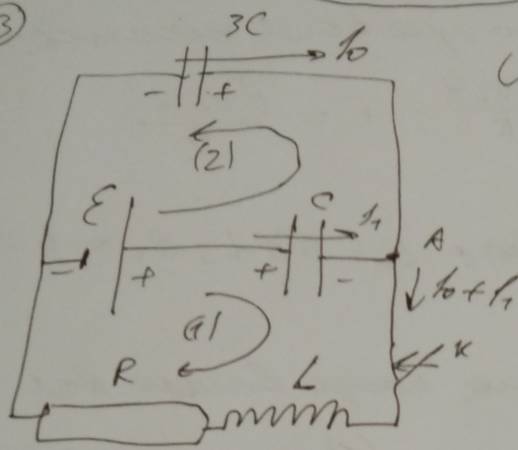 3
3C
I0
- +
(2)
ℰ C I1
A
- + + -
I0 + I1
(1)
K
R L